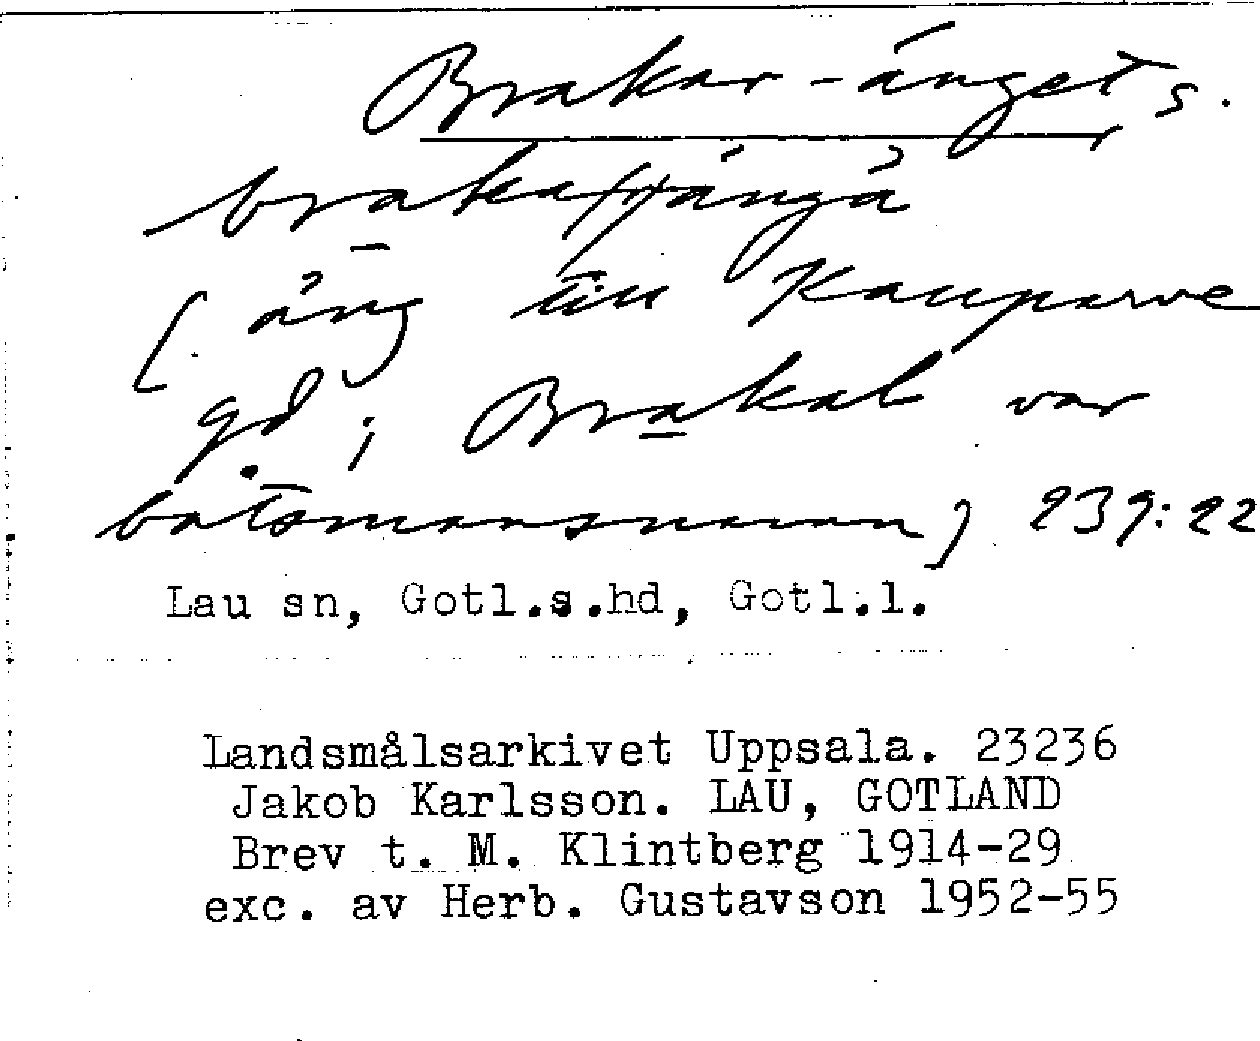 Brakar-änget s.
[äng till Kauparve
gd; Brakal var
båtsmansnamn) 239:22
Lau sn, Gotl.s.hd, Gotl.l.
Landsmålsarkivet Uppsala. 23236
Jakob Karlsson. LAU, GOTLAND
Brev t. M. Klintberg 1914-29
exc. av Herb. Gustavson 1952-55